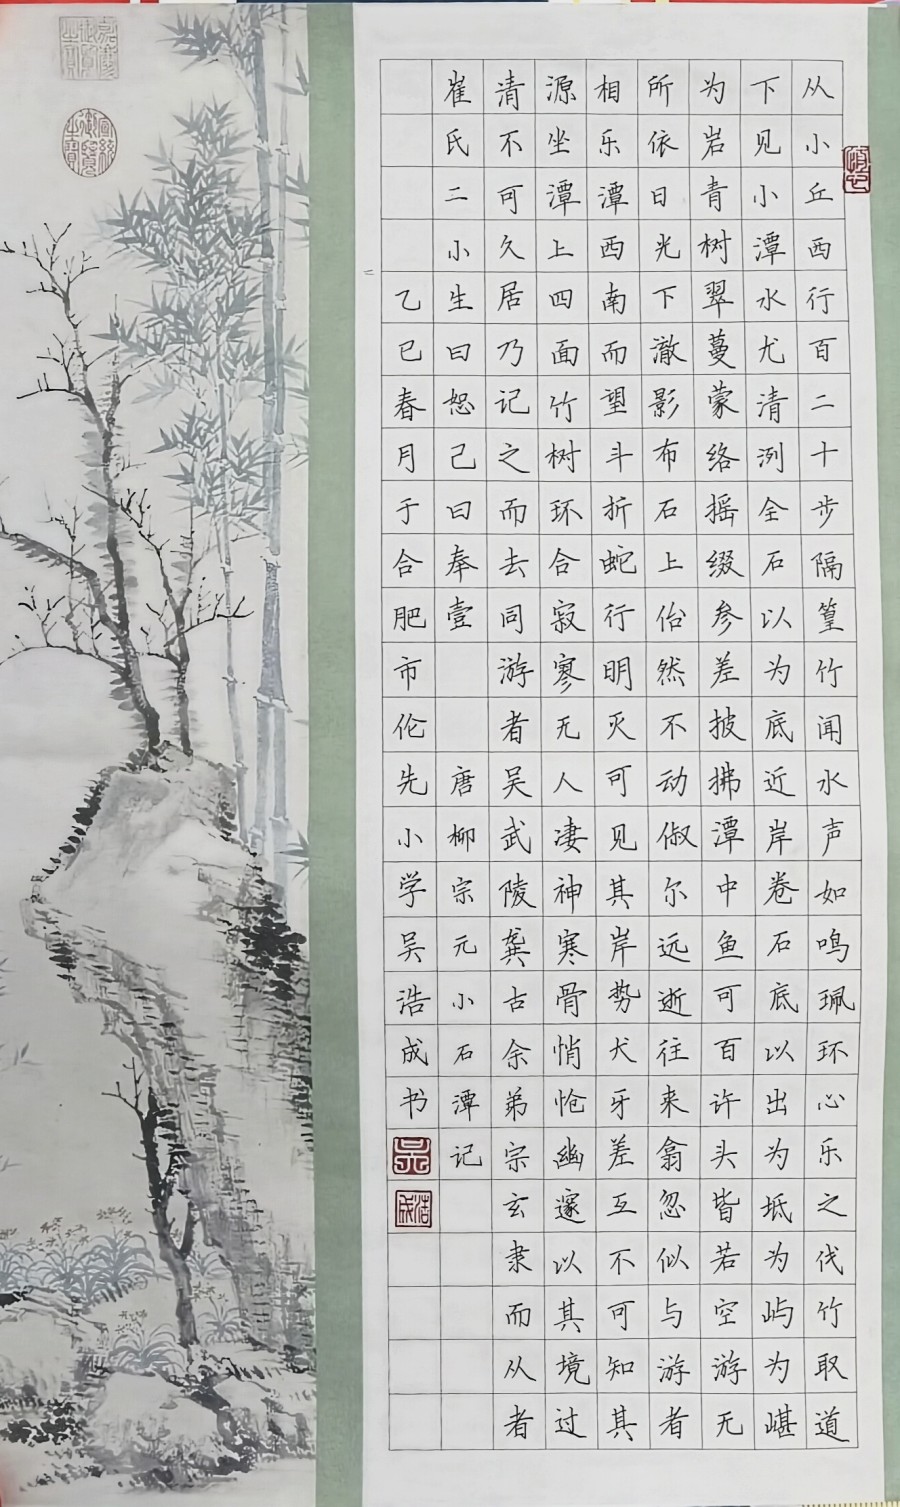 从小丘西行百二十步隔篁竹闻水声如鸣珮环心乐之伐竹取道
下见小潭水尤清洌全石以为底近岸卷石底以出为坻为屿为嵁
为岩青树翠蔓蒙络摇缀参差披拂潭中鱼可百许头皆若空游无
所依日光下澈影布石上佁然不动俶尔远逝往来翕忽似与游者
相乐潭西南而望斗折蛇行明灭可见其岸势犬牙差互不可知其
源坐潭上四面竹树环合寂寥无人凄神寒骨悄怆幽邃以其境过
清不可久居乃记之而去同游者吴武陵龚古余弟宗玄隶而从者
崔氏二小生曰恕己曰奉壹 唐柳宗元小石潭记
乙巳春月于合肥市伦先小学吴浩成书
吴
浩成